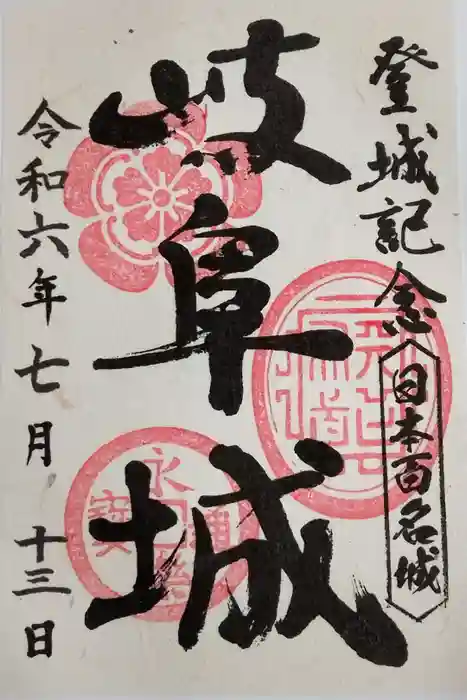 登城記念
日本百名城
岐阜城
永樂通寳
令和六年七月十三日